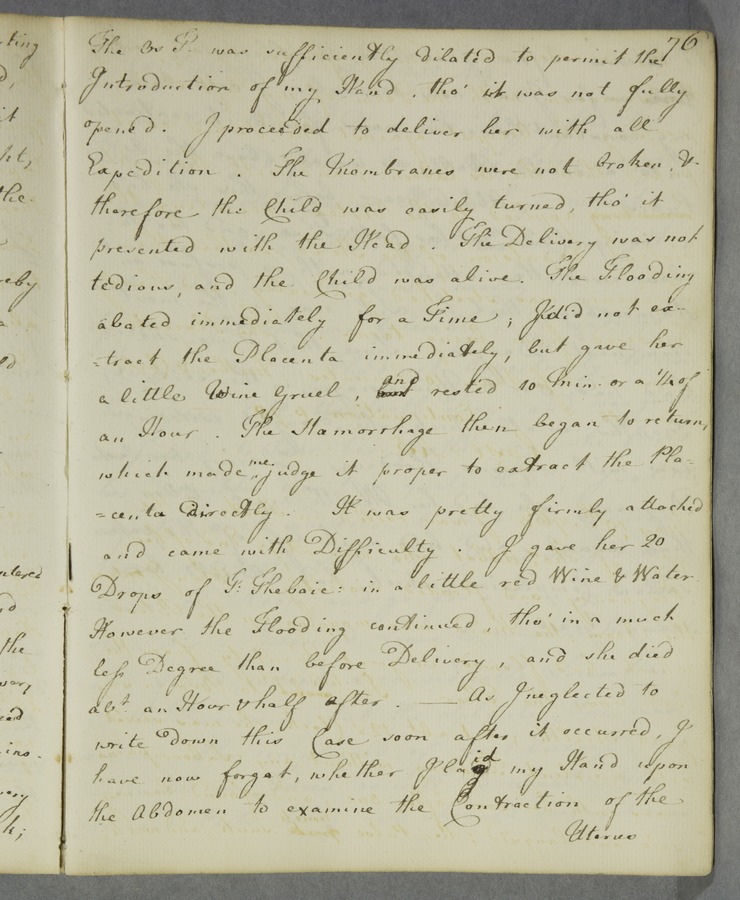 76
The Os T. was sufficiently dilated to permit the
Introduction of my Hand, tho' it was not fully
opened. I proceeded to deliver her with all
Expedition. The Membranes were not broken, &
therefore the Child was easily turned, tho' it
presented with the Head. The Delivery was not
tedious, and the Child was alive. The Flooding
abated immediately for a Time; I did not ex-
-tract the Placenta immediately, but gave her
a little Wine Gruel, and rested 10 Min. or a ¼ of
an Hour. The Hæmorrhage then began to return,
which made me judge it proper to extract the Pla-
-centa directly. It was pretty firmly attached
and came with Difficulty. I gave her 20
Drops of T: Thebaic: in a little red Wine & Water
However the Flooding continued, tho' in a much
less Degree than before Delivery, and she died
abt. an Hour & half after. — As I neglected to
write down this Case soon after it occurred, I
have now forgot, whether I laid my Hand upon
the Abdomen to examine the Contraction of the
Uterus